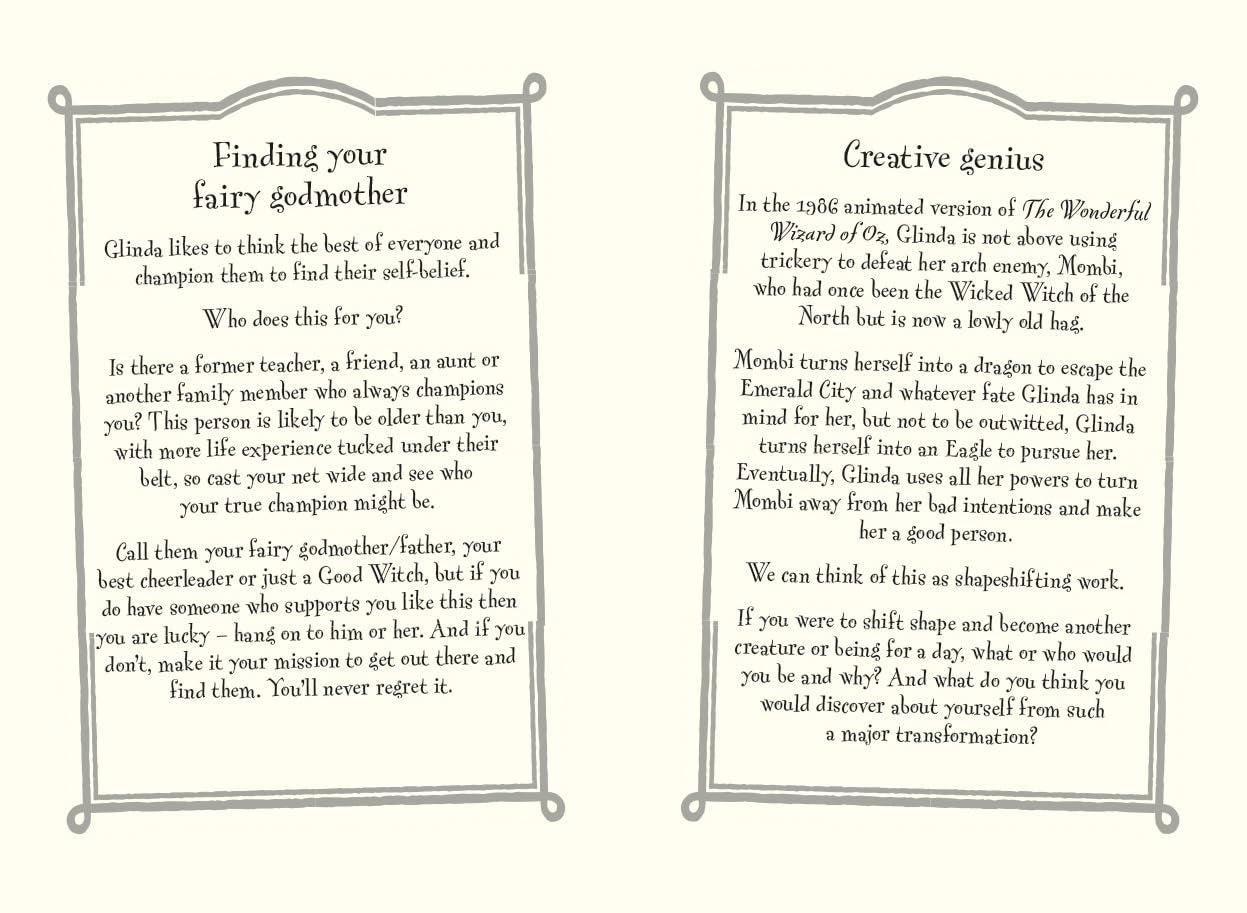 Finding your
fairy godmother
Glinda likes to think the best of everyone and
champion them to find their self-belief.
Who does this for you?
Is there a former teacher, a friend, an aunt or
another family member who always champions
you? This person is likely to be older than you,
with more life experience tucked under their
belt, so cast your net wide and see who
your true champion might be.
Call them your fairy godmother/father, your
best cheerleader or just a Good Witch, but if you
do have someone who supports you like this then
you are lucky – hang on to him or her. And if you
don't, make it your mission to get out there and
find them. You'll never regret it.
Creative genius
In the 1986 animated version of The Wonderful
Wizard of Oz, Glinda is not above using
trickery to defeat her arch enemy, Mombi,
who had once been the Wicked Witch of the
North but is now a lowly old hag.
Mombi turns herself into a dragon to escape the
Emerald City and whatever fate Glinda has in
mind for her, but not to be outwitted, Glinda
turns herself into an Eagle to pursue her.
Eventually, Glinda uses all her powers to turn
Mombi away from her bad intentions and make
her a good person.
We can think of this as shapeshifting work.
If you were to shift shape and become another
creature or being for a day, what or who would
you be and why? And what do you think you
would discover about yourself from such
a major transformation?